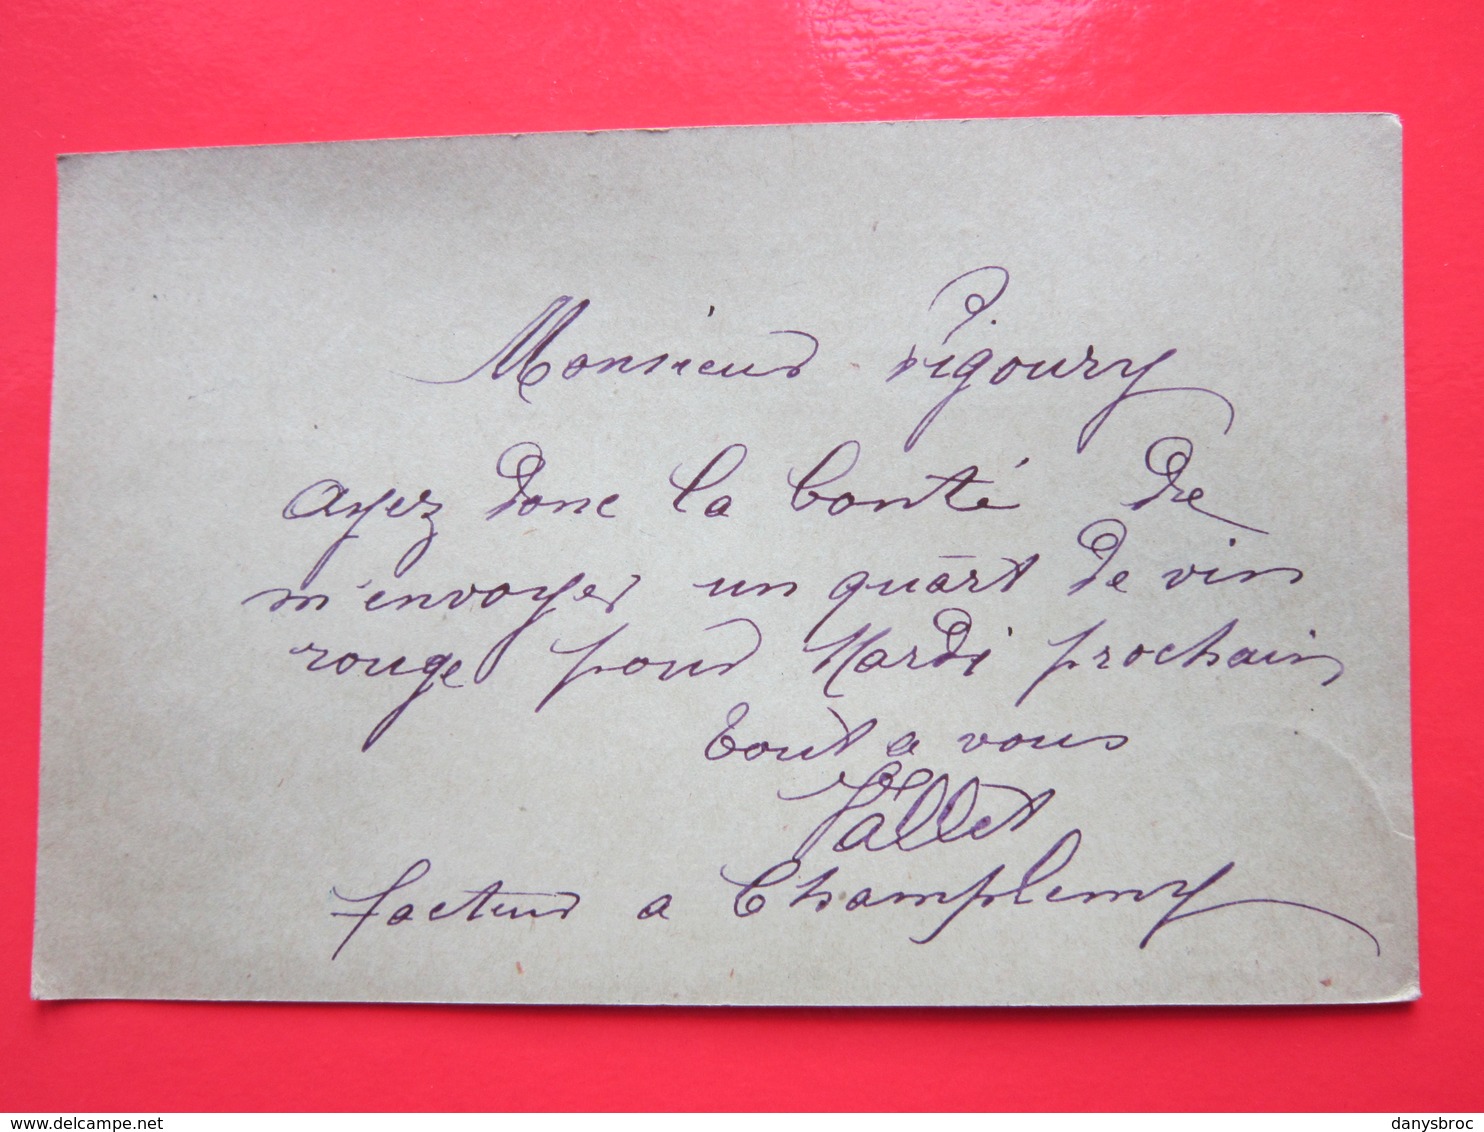 Monsieur Pigoury
ayez donc la bonté de
m'envoyer un quart de vin
rouge pour Mardi prochain
tout a vous
Vallet
facteur a Champlemy
www.delcampe.net
danysbroc